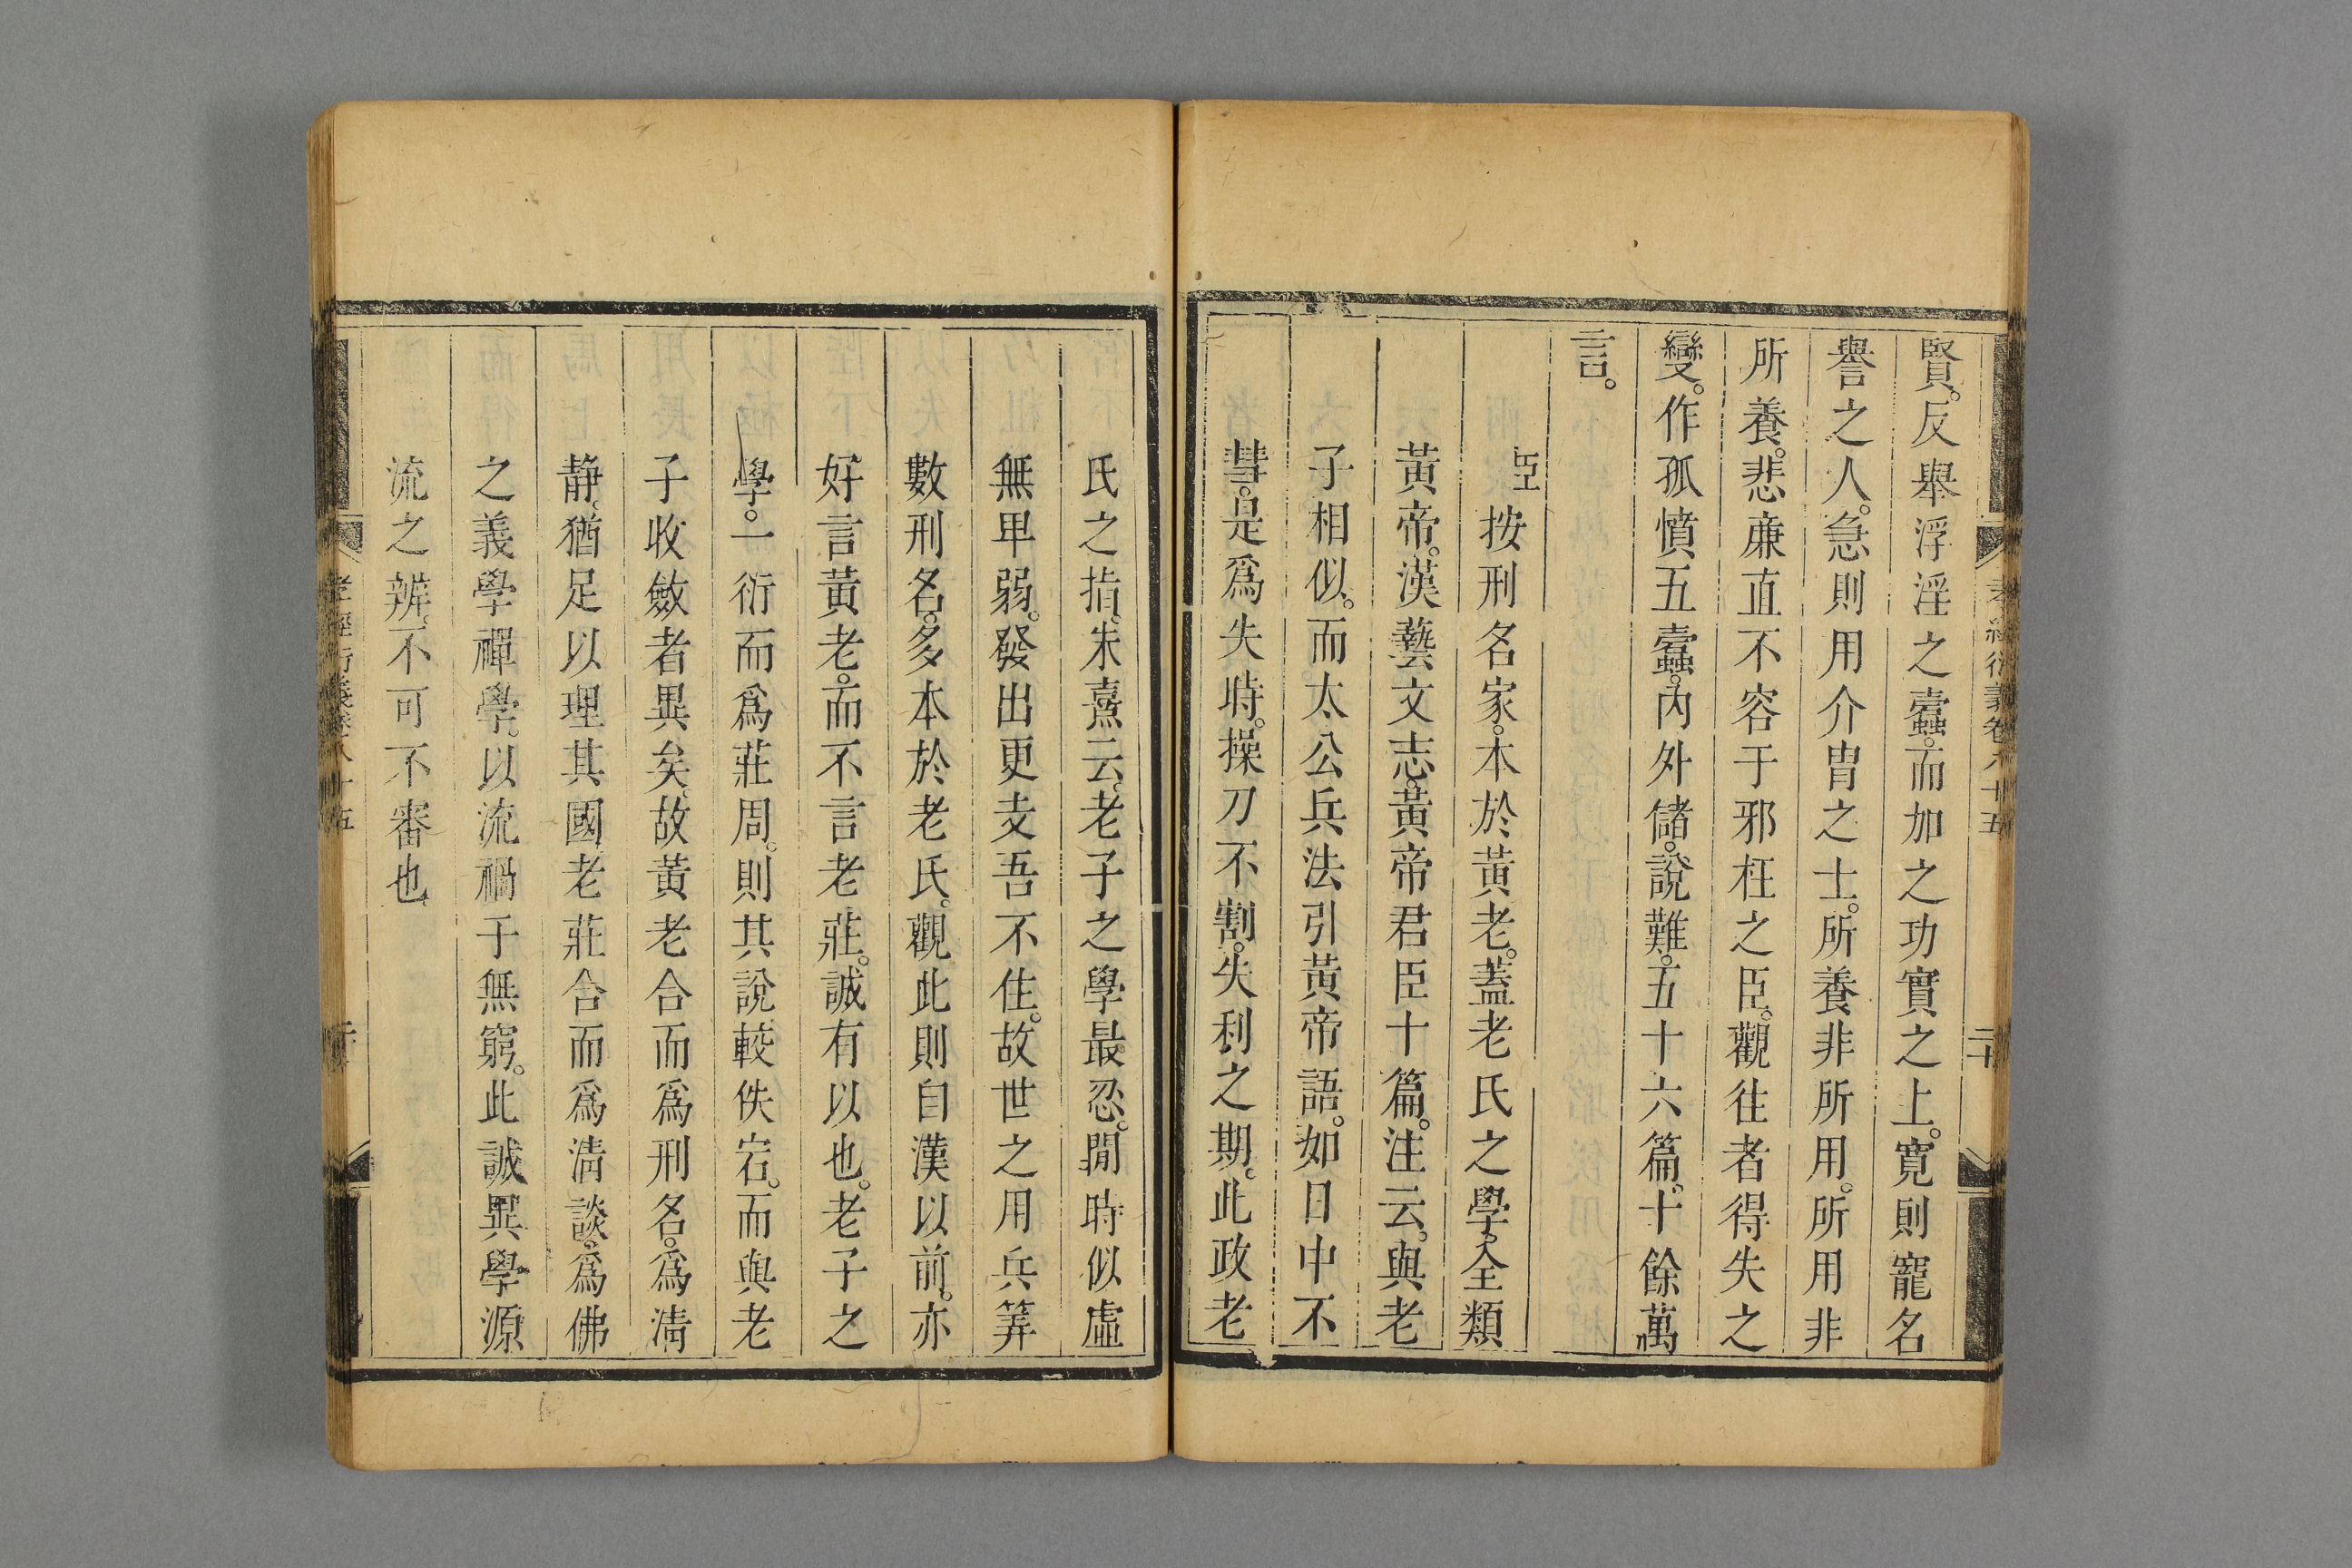 孝經衍義卷八十五
二十
賢。反舉浮淫之蠹。而加之功實之上。寬則寵名
譽之人。急則用介胄之士。所養非所用。所用非
所養。悲廉直不容于邪枉之臣。觀往者得失之
變。作孤憤五蠹。內外儲。說難。五十六篇。十餘萬
言。
臣按刑名家。本於黃老。蓋老氏之學。全類
黃帝。漢藝文志。黃帝君臣十篇。注云。與老
子相似。而太公兵法引黃帝語。如日中不
彗。是爲失時。操刀不割。失利之期。此政老
氏之指。朱熹云。老子之學最忍。閒時似虛
無卑弱。發出更支吾不住。故世之用兵筭
數刑名。多本於老氏。觀此則自漢以前。亦
好言黃老。而不言老莊。誠有以也。老子之
學。一衍而爲莊周。則其說較佚宕。而與老
子收斂者異矣。故黃老合而爲刑名。爲淸
靜。猶足以理其國。老莊合而爲淸談。爲佛
之義學禪學。以流禍于無窮。此誠異學源
流之辨。不可不審也
孝經衍義卷八十五